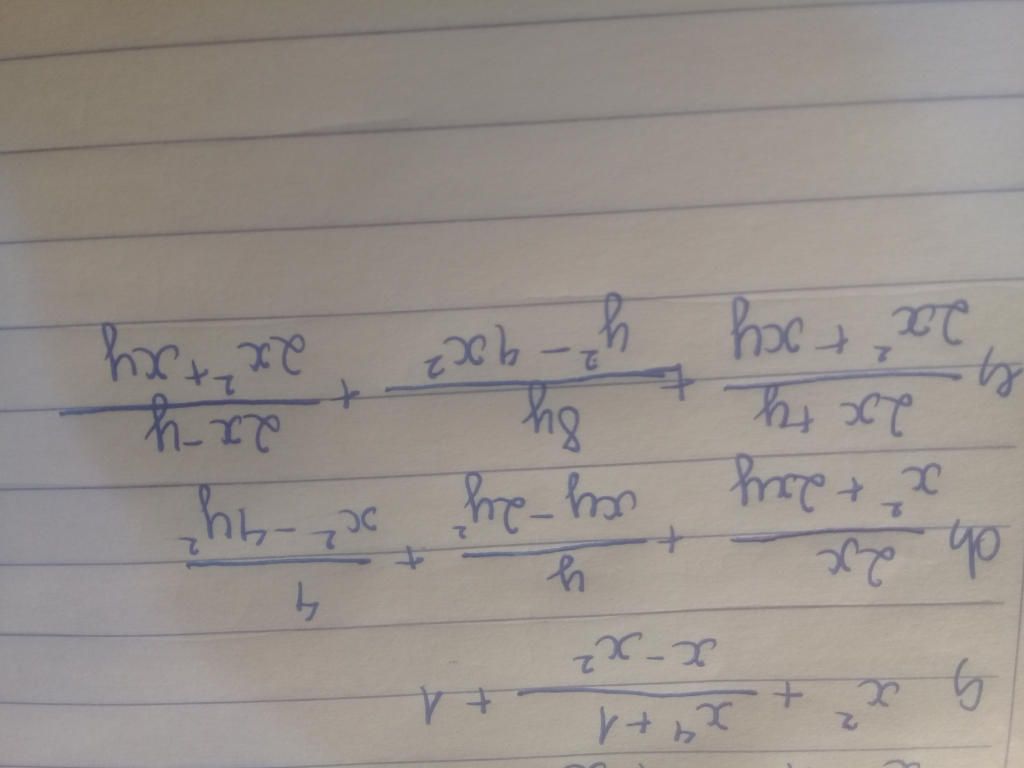 c, x² + \frac{x⁴ + 1}{x - x²} + 1
d, \frac{2x}{x² + 2xy} + \frac{y}{xy - 2y²} + \frac{4}{x² - 4y²}
e, \frac{2x + y}{2x² + xy} + \frac{8y}{y² - 4x²} + \frac{2x - y}{2x² + xy}